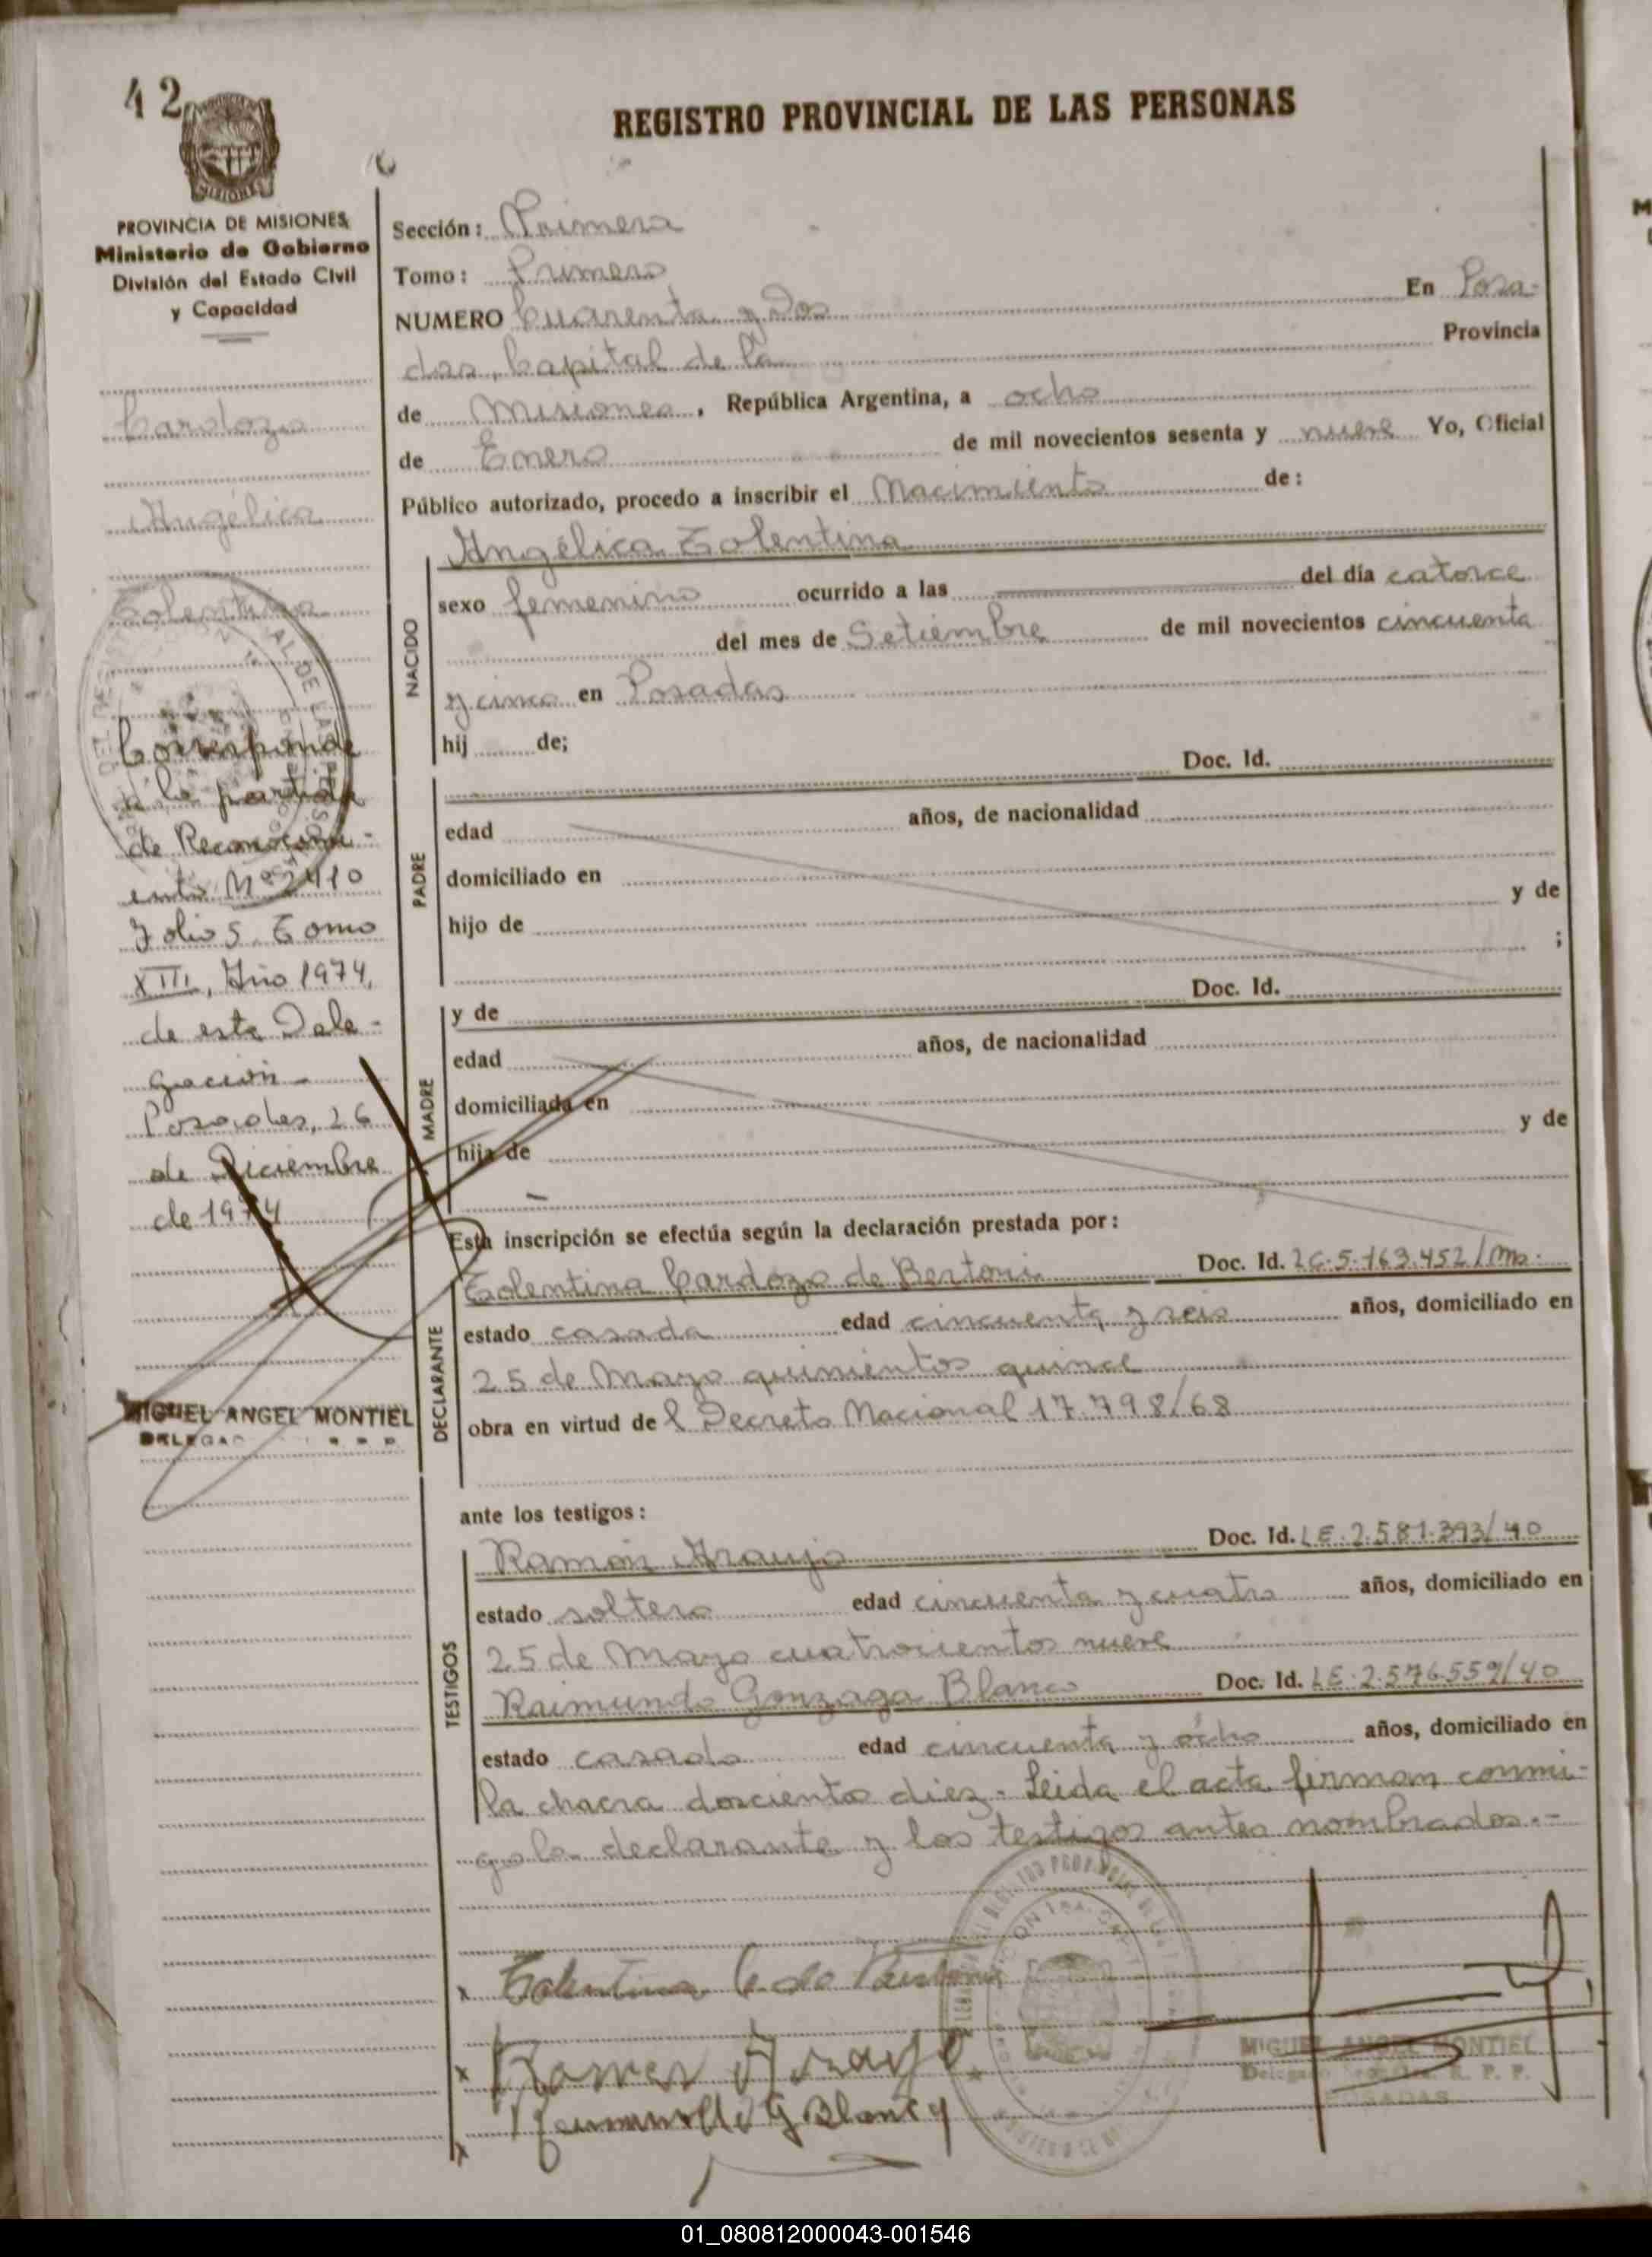 42
REGISTRO PROVINCIAL DE LAS PERSONAS
MISIONES
PROVINCIA DE MISIONES
Ministerio de Gobierno
División del Estado Civil
y Capacidad
Cardozo
Angélica
Tolentina
Corresponde
a la partida
de Reconocimi-
ento Nº 2410
Folio 5. Tomo
XIII, Año 1974,
de esta Dele-
gación
Posadas, 26
de Diciembre
de 1974
MIGUEL ANGEL MONTIEL
Sección: Primera
Tomo: Primero
NUMERO Cuarenta y Dos En Posa-
das, Capital de la Provincia
de Misiones, República Argentina, a ocho
de Enero de mil novecientos sesenta y nueve Yo, Oficial
Público autorizado, procedo a inscribir el Nacimiento de:
NACIDO
Angélica Tolentina
sexo femenino ocurrido a las del día catorce
del mes de Setiembre de mil novecientos cincuenta
y cinco en Posadas
hij de;
PADRE
Doc. Id.
edad años, de nacionalidad
domiciliado en
hijo de y de
;
MADRE
y de Doc. Id.
edad años, de nacionalidad
domiciliada en
hija de y de
Esta inscripción se efectúa según la declaración prestada por:
DECLARANTE
Tolentina Cardozo de Bertoni Doc. Id. LC.5.163.452/Ms.
estado casada edad cincuenta y seis años, domiciliado en
25 de Mayo quinientos quince
obra en virtud de l Decreto Nacional 17.798/68
ante los testigos:
TESTIGOS
Ramón Araujo Doc. Id. LE.2.581.393/40
estado soltero edad cincuenta y cuatro años, domiciliado en
25 de Mayo cuatrocientos nueve
Raimundo Gonzaga Blanco Doc. Id. LE.2.576.559/40
estado casado edad cincuenta y ocho años, domiciliado en
la chacra doscientos diez.- Leida el acta firman conmi-
go la declarante y los testigos antes nombrados.-
x Tolentina C. de Bertoni
x Ramon Araujo
x G Blanco
MIGUEL ANGEL MONTIEL
R. P. P.
POSADAS
01_080812000043-001546